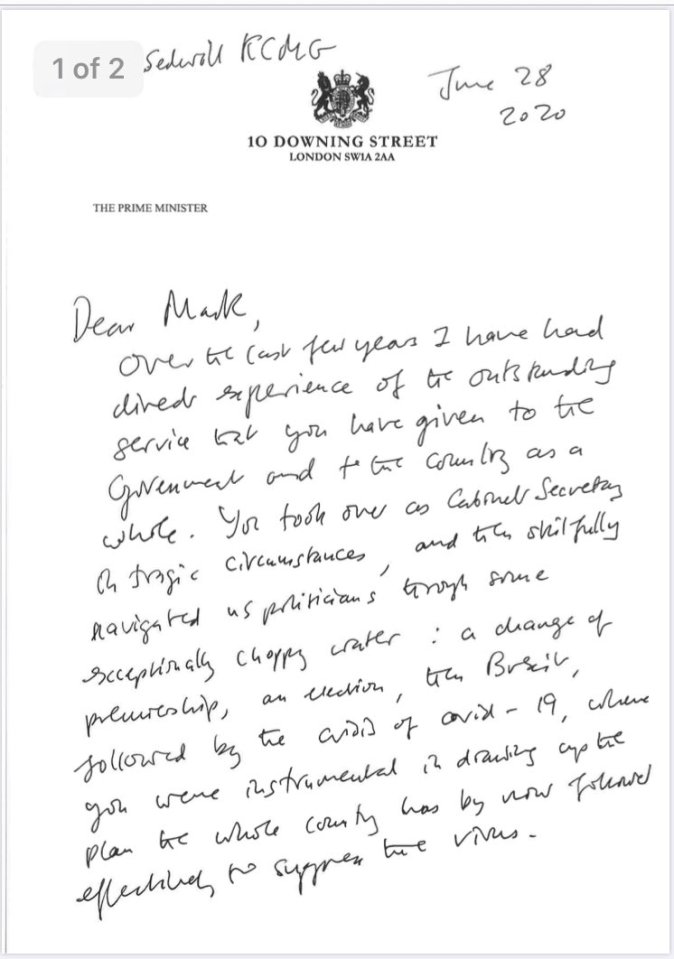 1 of 2
Sedwill KCMG
June 28
2020
10 DOWNING STREET
LONDON SW1A 2AA
THE PRIME MINISTER
Dear Mark,
Over the last few years I have had
direct experience of the outstanding
service that you have given to the
Government and to the country as a
whole. You took over as Cabinet Secretary
in tragic circumstances, and then skilfully
navigated us politicians through some
exceptionally choppy water: a change of
premiership, an election, then Brexit,
followed by the crisis of covid-19, where
you were instrumental in drawing up the
plan the whole country has by now followed
effectively to suppress the virus.